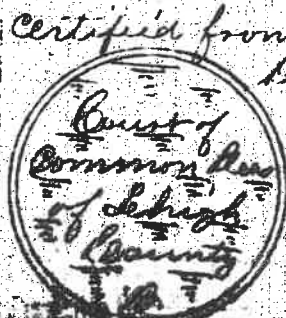 Certified from
Court of
Common Pleas
of Lehigh
County
Pa.